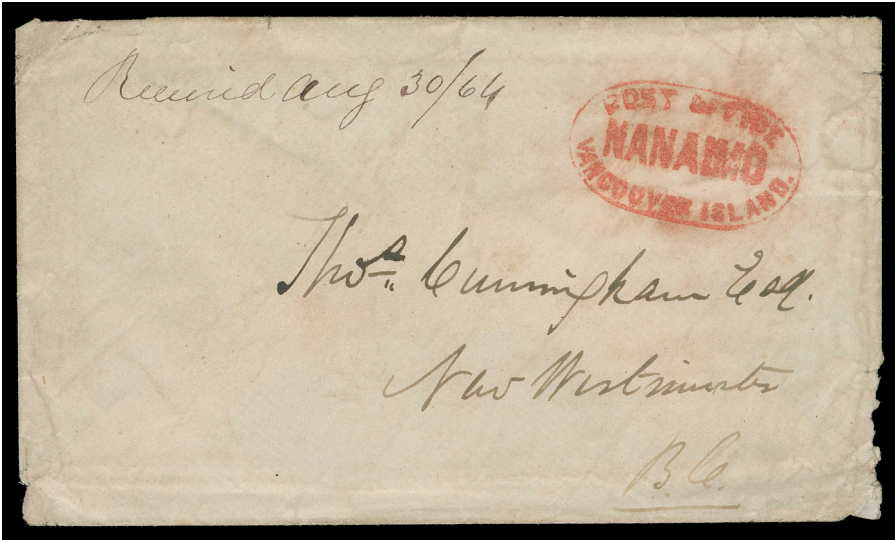 Received Aug 30/64
POST OFFICE
NANAIMO
VANCOUVER ISLAND.
Thos. Cunningham Esq.
New Westminster
B.C.